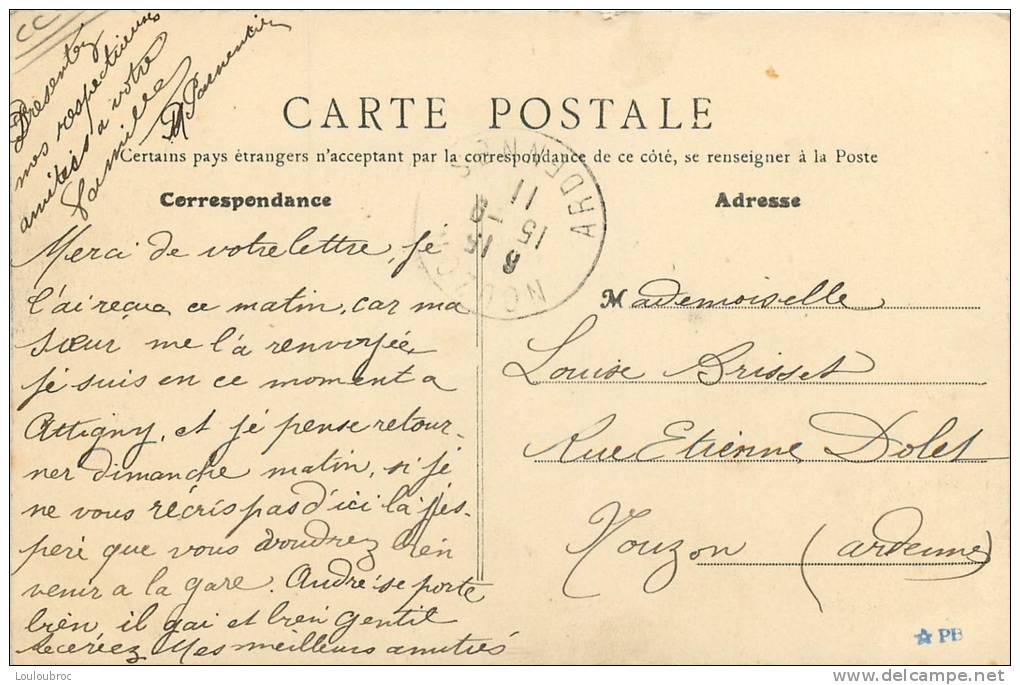 CC
Presentez
mes respectueuses
amitiés a votre
famille
Parmentier
CARTE POSTALE
Certains pays étrangers n'acceptant par la correspondance de ce côté, se renseigner à la Poste
Correspondance
Merci de votre lettre, jé
l'ai reçue ce matin, car ma
sœur me l'a renvoyée
jé suis en ce moment a
Attigny, et jé pense retour-
ner dimanche matin, si jé
ne vous récris pas d'ici là j'és-
peré que vous voudrez bien
venir a la gare. André se porte
bien, il gai et bien gentil
recevez Mes meilleurs amitiés
NOUZON
8
15
11
ARDENNES
Adresse
Mademoiselle
Louise Brisset
Rue Etienne Dolet
Nouzon (ardennes)
PB
Louloubroc
delcampe.net